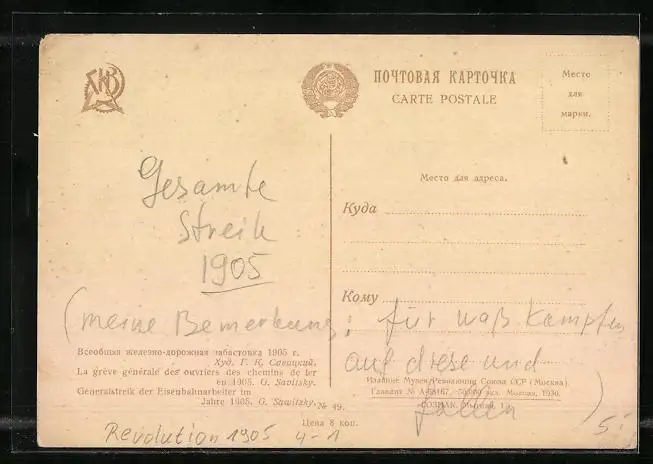 ПОЧТОВАЯ КАРТОЧКА
CARTE POSTALE
Место
для
марки.
Место для адреса.
Куда
Кому
Gesamte
Streik
1905
(meine Bemerkung: für waß kämpfen
auf diese und
fallen)
5.-
Всеобщая железно-дорожная забастовка 1905 г.
Худ. Г. К. Савицкий.
La grève générale des ouvriers des chemins de fer
en 1905. G. Savitsky.
Generalstreik der Eisenbahnarbeiter im
Jahre 1905. G. Sawitzky.
№ 49.
Цена 8 коп.
Издание Музея Революции Союза ССР (Москва).
Главлит № Москва, 1930.
Revolution 1905 4-1